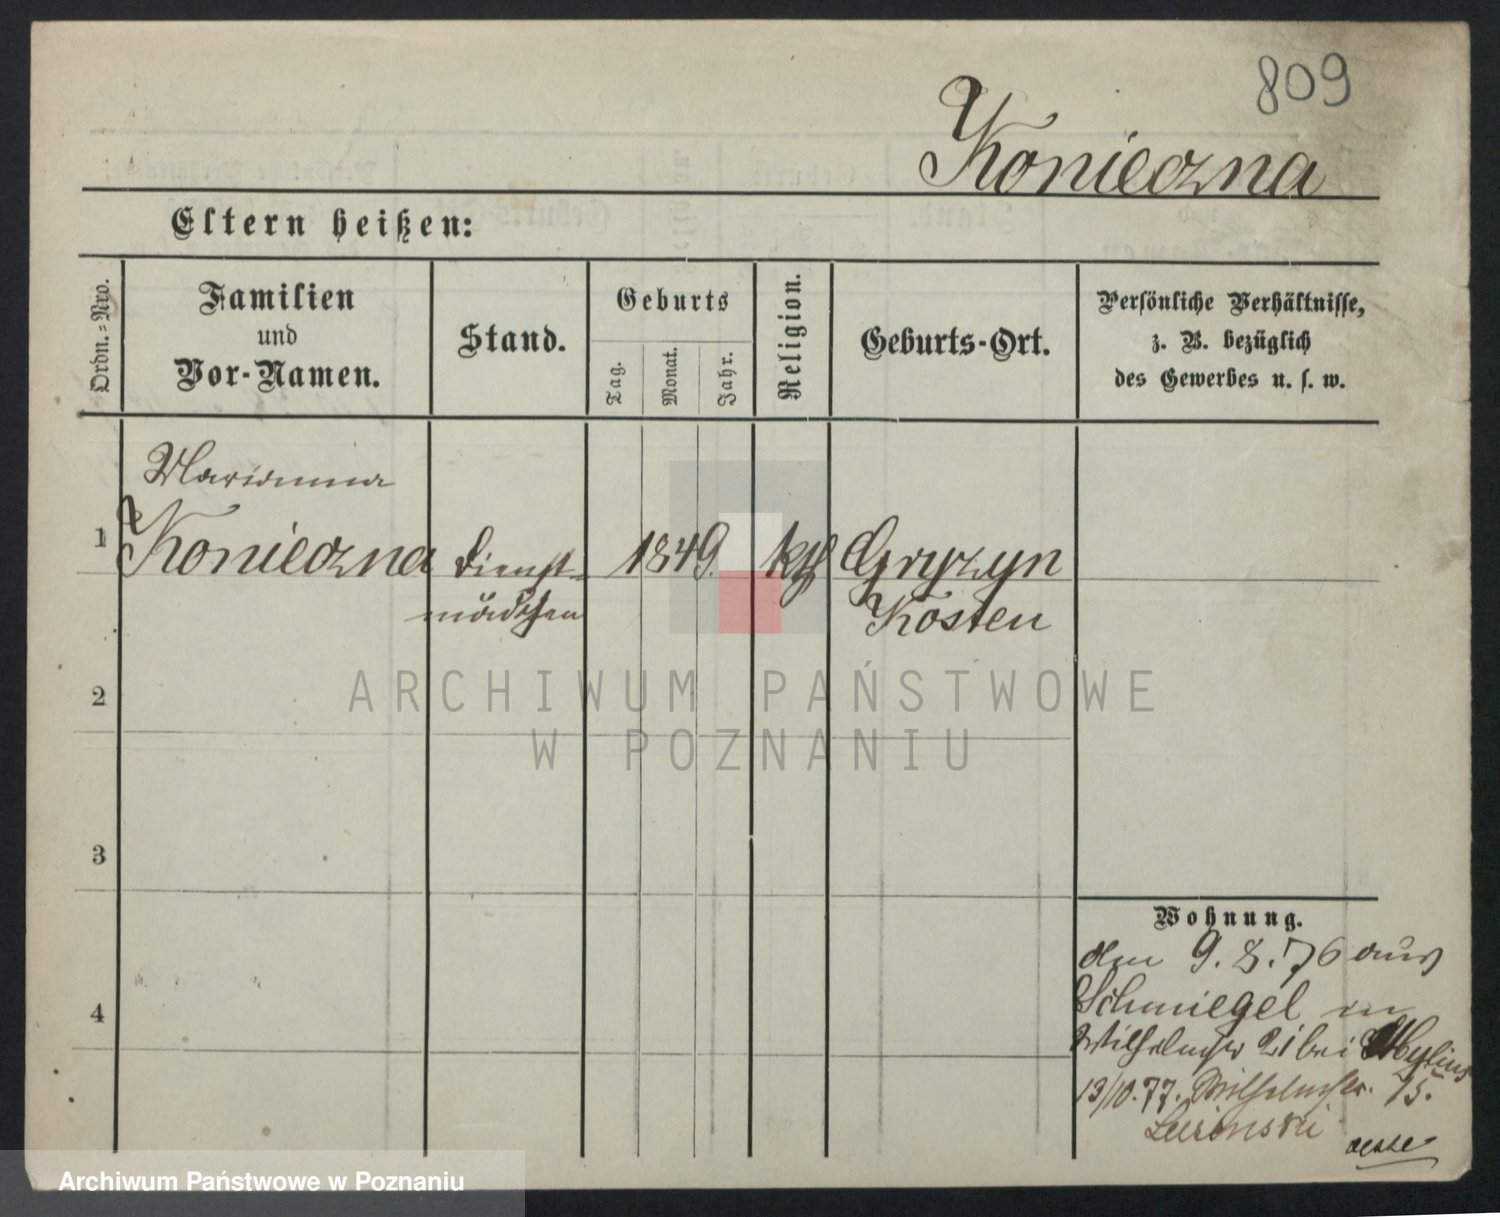 809
Konieczna
Eltern heißen:
Ordn.=Nro.
Familien
und
Vor-Namen.
Stand.
Geburts
Tag.
Monat.
Jahr.
Religion.
Geburts-Ort.
Persönliche Verhältnisse,
z. B. bezüglich
des Gewerbes u. s. w.
Marianna
1 Konieczna Dienst= 1849. kth Gryzyn
mädchen Kosten
ARCHIWUM PAŃSTWOWE
W POZNANIU
2
3
Wohnung.
den 9.8.76 aus
Schmiegel in
4
Wilhelmstr 21 bei Mylius
13/10.77. Wilhelmstr. 15.
Archiwum Państwowe w Poznaniu